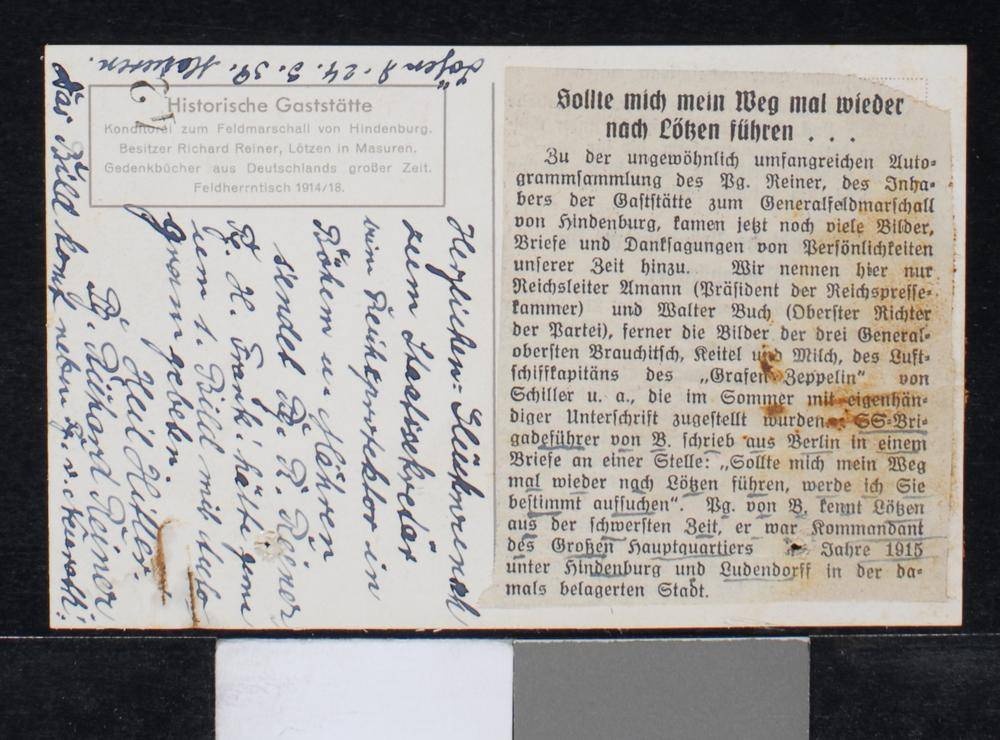 Lötzen d. 24. 3. 39. Masuren.
Historische Gaststätte
Konditorei zum Feldmarschall von Hindenburg.
Besitzer Richard Reiner, Lötzen in Masuren.
Gedenkbücher aus Deutschlands großer Zeit.
Feldherrntisch 1914/18.
Herzlichen Glückwunsch
zum Staatssekretär
beim Reichsprotektor in
Böhmen u. Mähren
sendet Pg. R. Reiner
Pg. K. Frank! hätte gern
um 1. Bild mit Auto-
gramm gebeten.
Heil Hitler!
Pg. Richard Reiner
Das Bild kommt neben Pg. v. Neurath!
Sollte mich mein Weg mal wieder
nach Lötzen führen . . .
Zu der ungewöhnlich umfangreichen Auto-
grammsammlung des Pg. Reiner, des Inha-
bers der Gaststätte zum Generalfeldmarschall
von Hindenburg, kamen jetzt noch viele Bilder,
Briefe und Danksagungen von Persönlichkeiten
unserer Zeit hinzu. Wir nennen hier nur
Reichsleiter Amann (Präsident der Reichspresse-
kammer) und Walter Buch (Oberster Richter
der Partei), ferner die Bilder der drei General-
obersten Brauchitsch, Keitel und Milch, des Luft-
schiffkapitäns des „Grafen Zeppelin" von
Schiller u. a., die im Sommer mit eigenhän-
diger Unterschrift zugestellt wurden. SS-Bri-
gadeführer von B. schrieb aus Berlin in einem
Briefe an einer Stelle: „Sollte mich mein Weg
mal wieder nach Lötzen führen, werde ich Sie
bestimmt aufsuchen". Pg. von B. kennt Lötzen
aus der schwersten Zeit, er war Kommandant
des Großen Hauptquartiers Jahre 1915
unter Hindenburg und Ludendorff in der da-
mals belagerten Stadt.